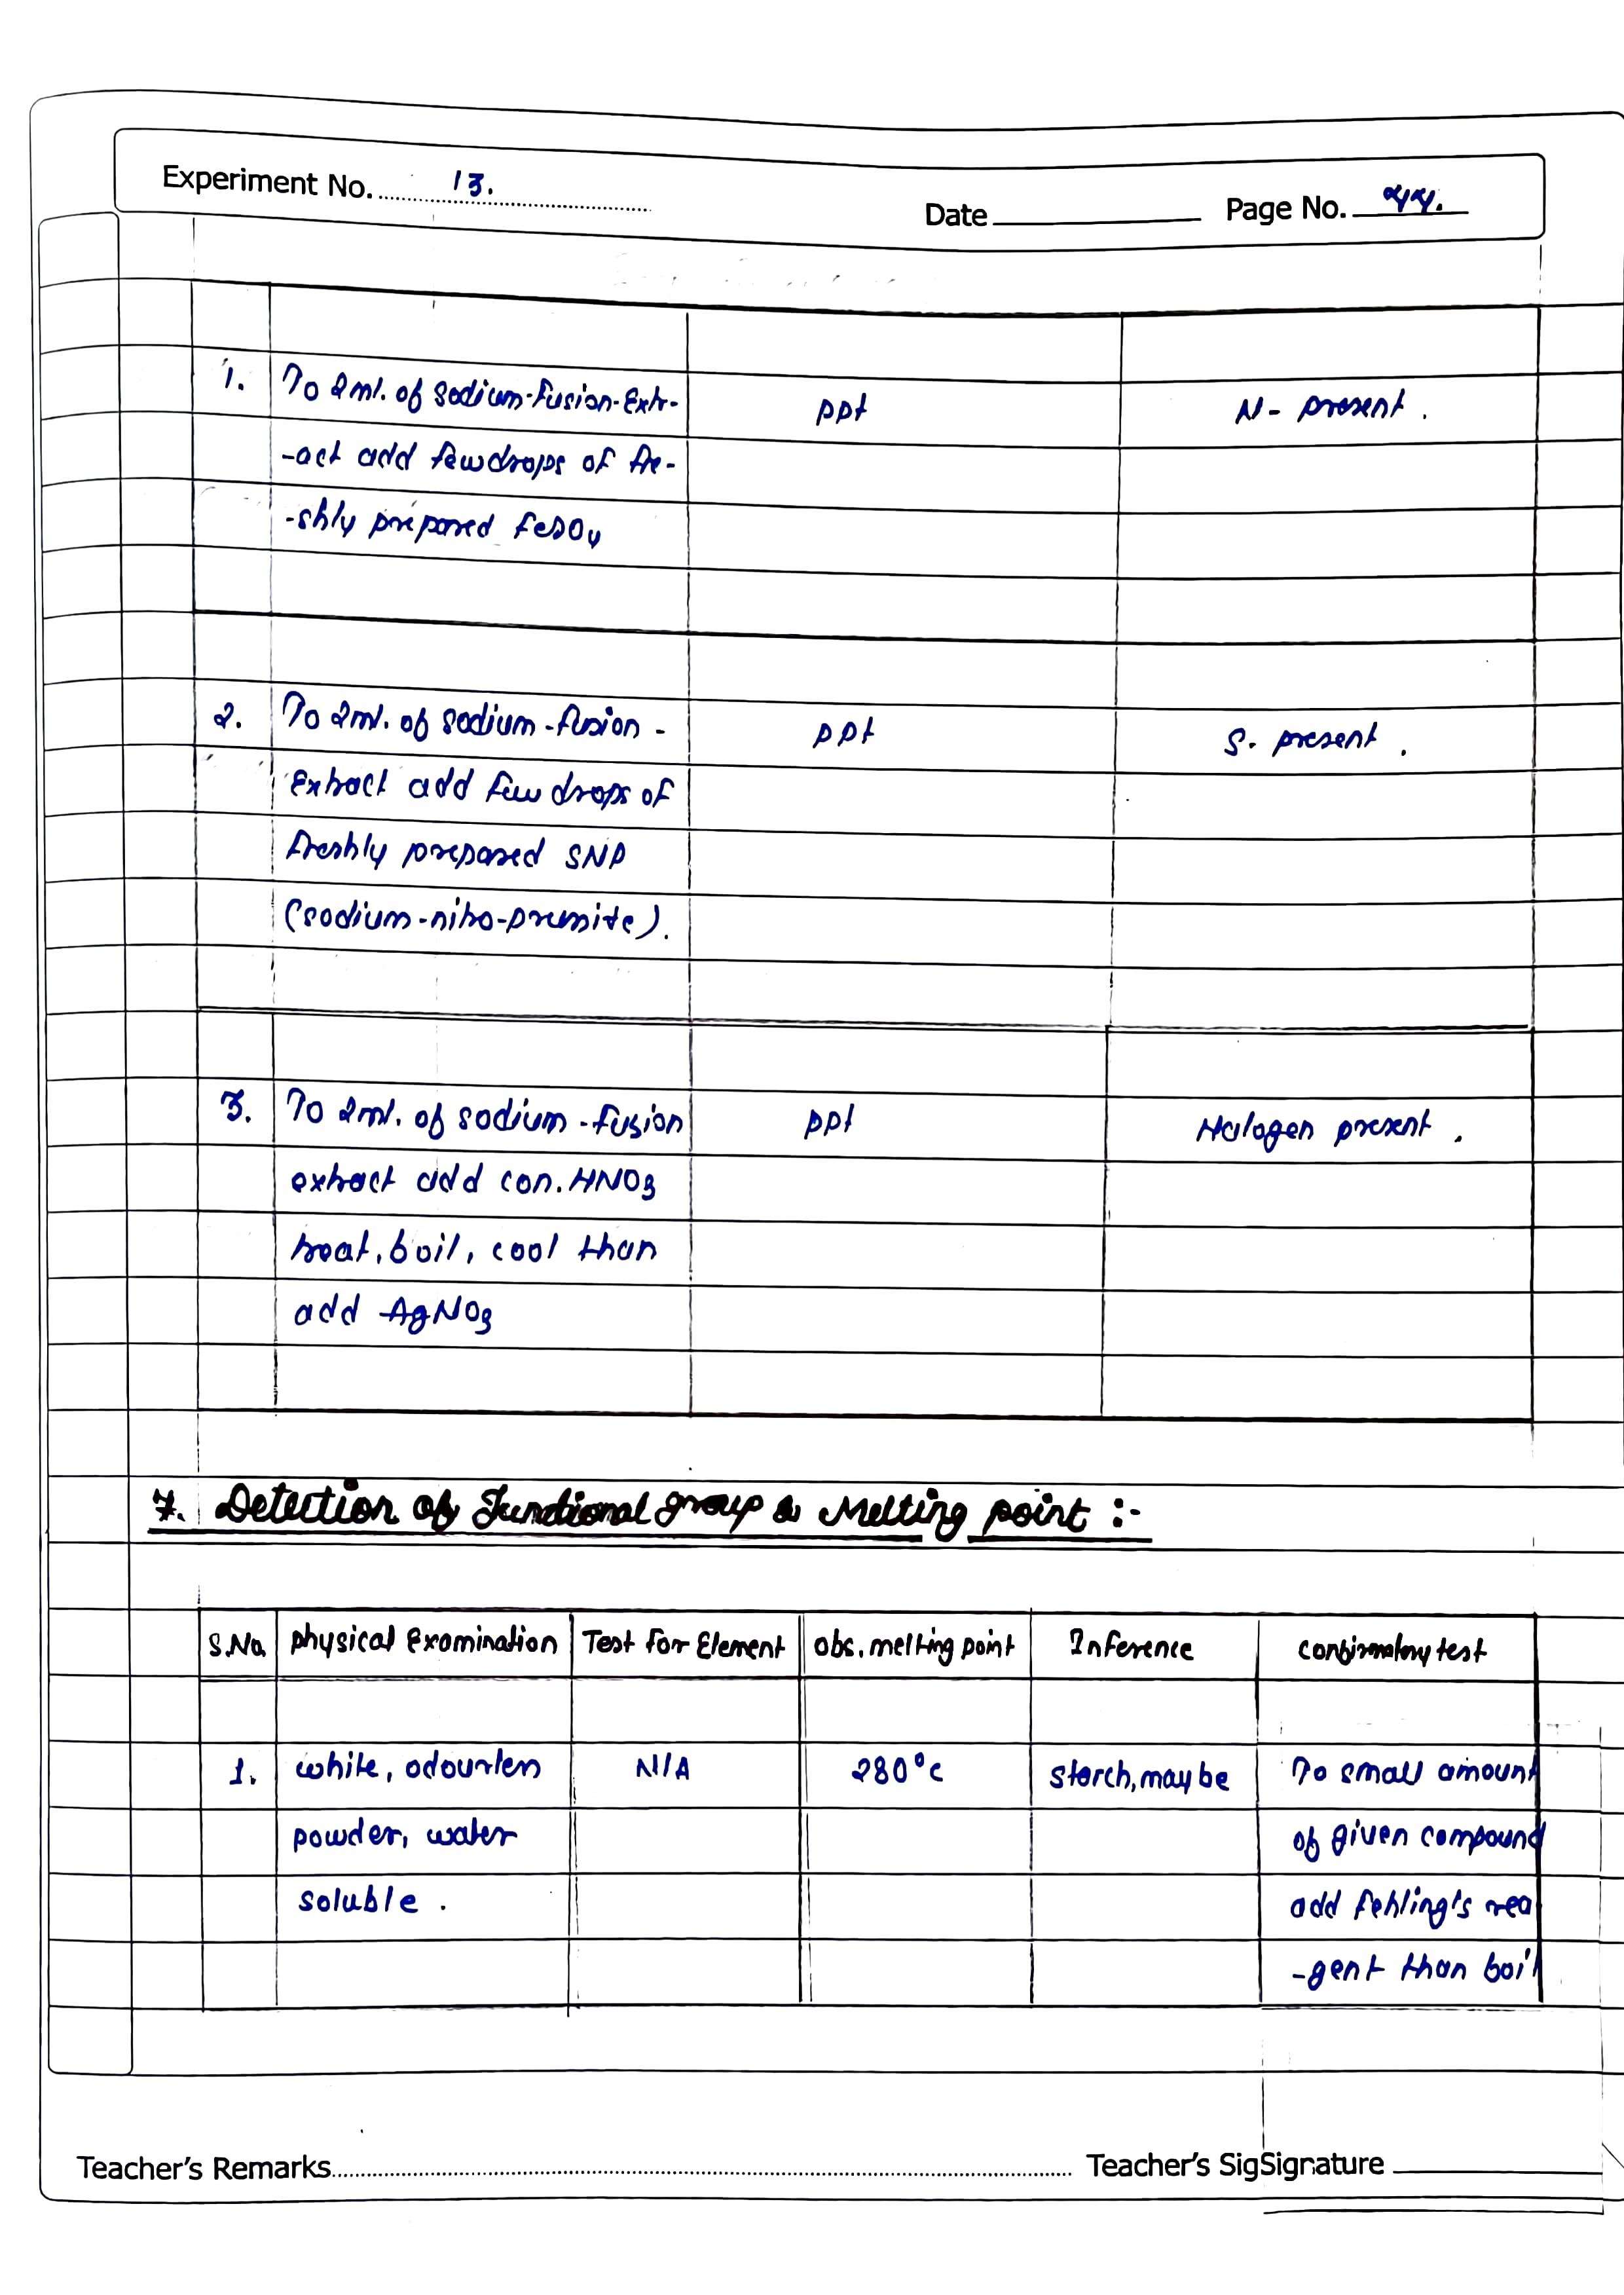 Experiment No. 13.
Date Page No. 44.
1. To 2ml. of Sodium-Fusion-Extr- ppt N- present.
-act add few drops of fre-
-shly prepared FeSO4
2. To 2ml. of sodium-fusion- ppt S- present.
Extract add few drops of
freshly prepared SNP
(sodium-nitro-prumite).
3. To 2ml. of sodium-fusion ppt Halogen present.
extract add con. HNO3
heat, boil, cool than
add AgNO3
7. Detection of Functional group & Melting point :-
S.No. physical Examination Test For Element obs. melting point Inference confirmatory test
1. white, odourless N/A 280°C starch, may be To small amount
powder, water of given compound
soluble. add fehling's rea
-gent than boil
Teacher's Remarks Teacher's SigSignature